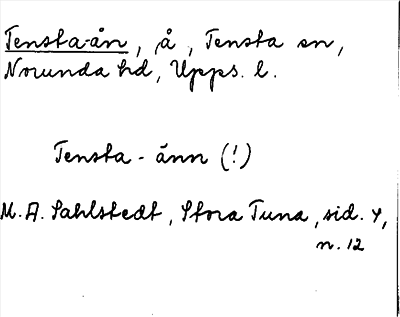 Tensta-ån, å, Tensta sn,
Norunda hd, Upps. l.
Tensta - ånn (!)
M. A. Sahlstedt, Stora Tuna, sid. 4,
n. 12